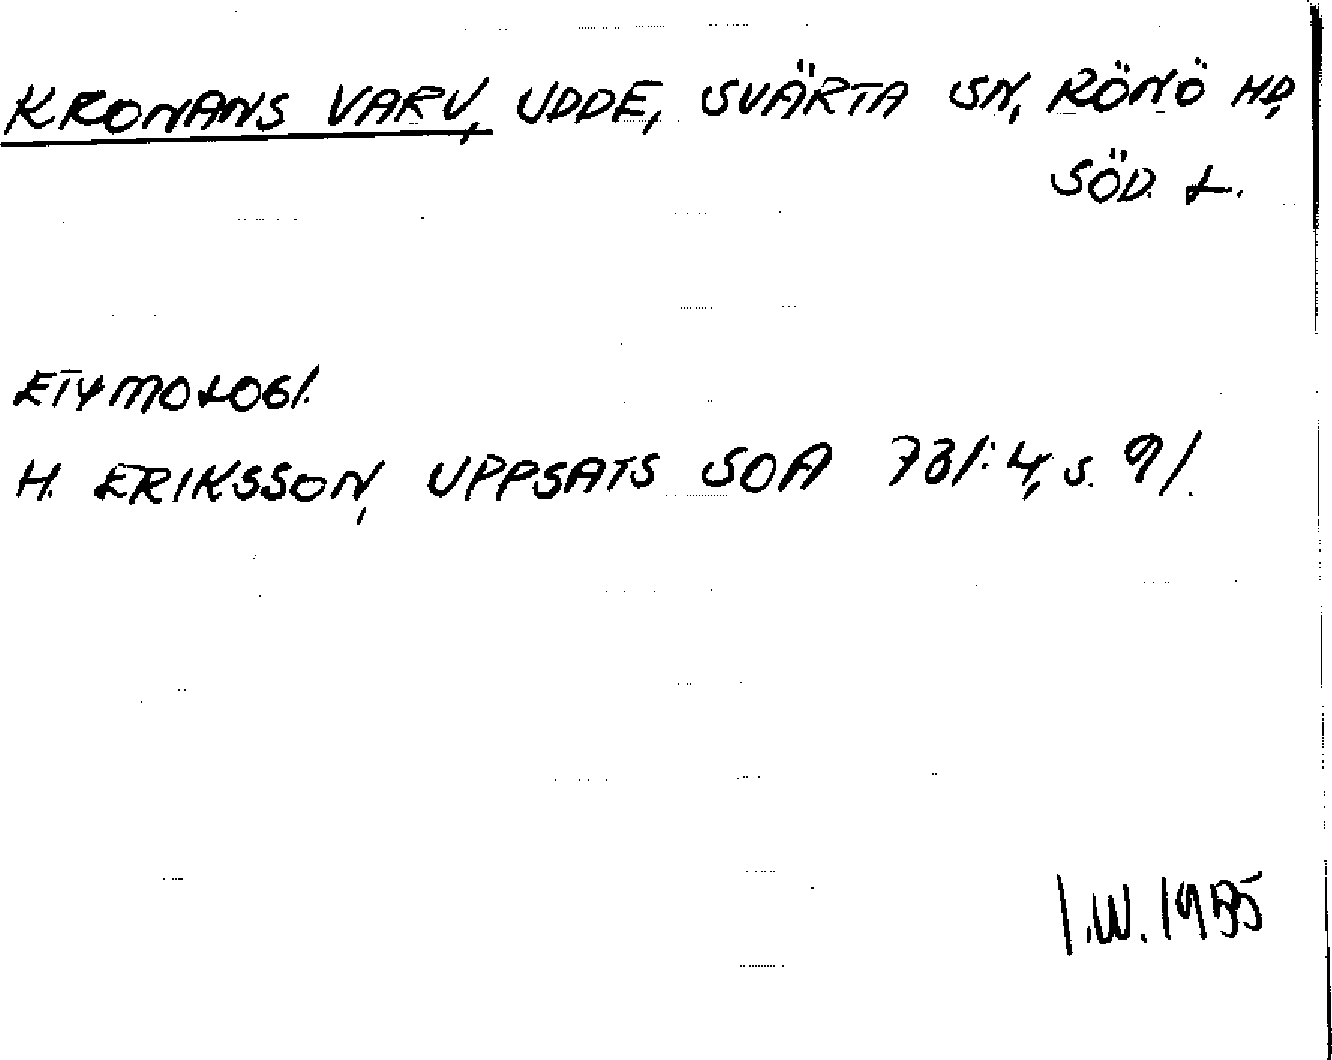 KRONANS VARV, UDDE, SVÄRTA SN, RÖNÖ HD,
SÖD. L.
ETYMOLOGI.
H. ERIKSSON, UPPSATS SOA 731:4, s. 91.
I.W. 1985